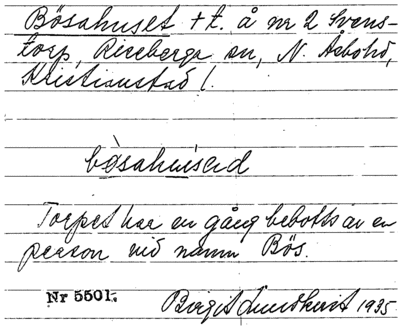 Bösahuset † t. å nr 2 Svens-
torp, Riseberga sn, N. Åsbo hd,
Kristianstad l.
bòsahusəd
Torpet har en gång bebotts av en
person vid namn Bös.
Nr 5501.
Birgit Lundkvist 1935